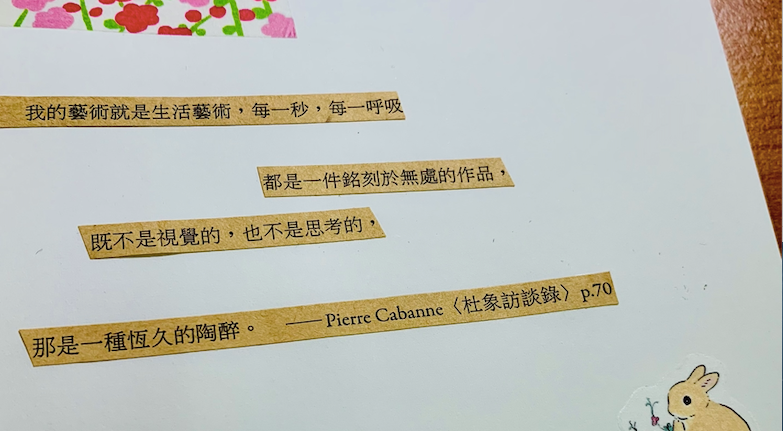 我的藝術就是生活藝術，每一秒，每一呼吸
都是一件銘刻於無處的作品，
既不是視覺的，也不是思考的，
那是一種恆久的陶醉。 ——Pierre Cabanne〈杜象訪談錄〉p.70